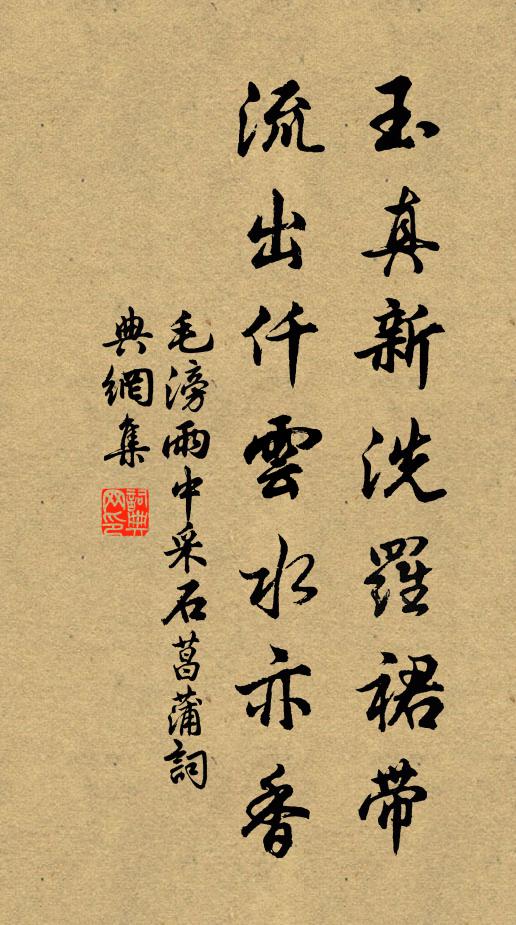 玉真新洗羅裙帶
流出仟雲水亦香
毛滂雨中采石菖蒲詞
典網集
詞典網印